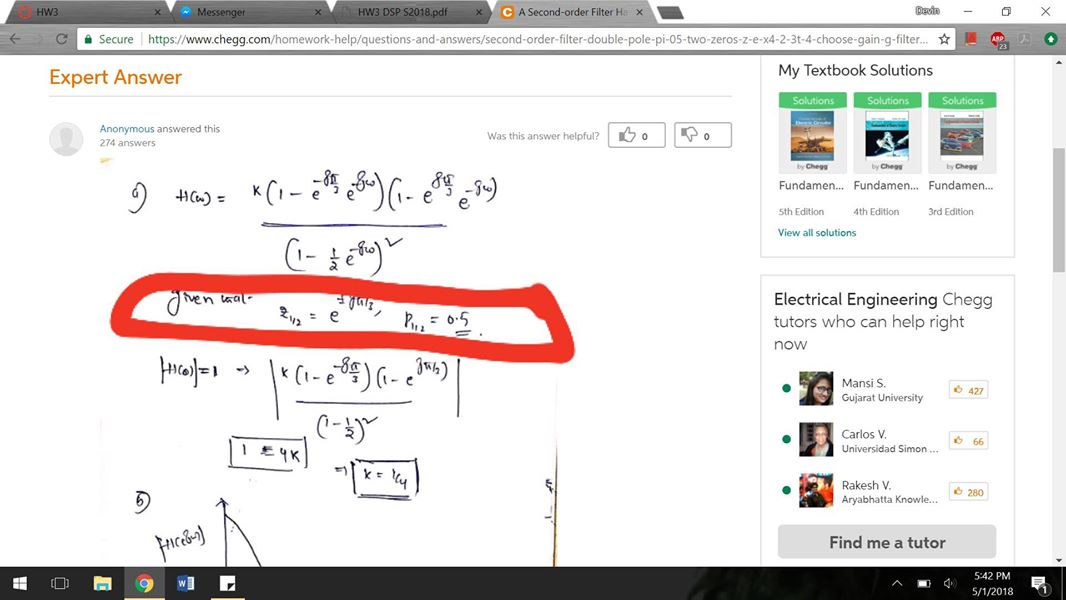 HW3
Messenger
HW3 DSP S2018.pdf
A Second-order Filter Ha
Devin
Secure
https://www.chegg.com/homework-help/questions-and-answers/second-order-filter-double-pole-pi-05-two-zeros-z-e-x4-2-3t-4-choose-gain-g-filter...
ABP
23
Expert Answer
Anonymous answered this
274 answers
Was this answer helpful?
0
0
a) H(ω) = K(1 - e^{-jπ/3} e^{-jω})(1 - e^{jπ/3} e^{-jω})
(1 - 1/2 e^{-jω})²
given that
z₁/₂ = e^{±jπ/3}, p₁/₂ = 0.5.
|H(0)| = 1 → | K(1 - e^{-jπ/3})(1 - e^{jπ/3}) |
(1 - 1/2)²
1 = 4K
⇒ K = 1/4
b)
|H(e^{jω})|
My Textbook Solutions
Solutions
Solutions
Solutions
by Chegg
by Chegg
by Chegg
Fundamen...
Fundamen...
Fundamen...
5th Edition
4th Edition
3rd Edition
View all solutions
Electrical Engineering Chegg
tutors who can help right
now
Mansi S.
Gujarat University
427
Carlos V.
Universidad Simon ...
66
Rakesh V.
Aryabhatta Knowle...
280
Find me a tutor
5:42 PM
5/1/2018
1